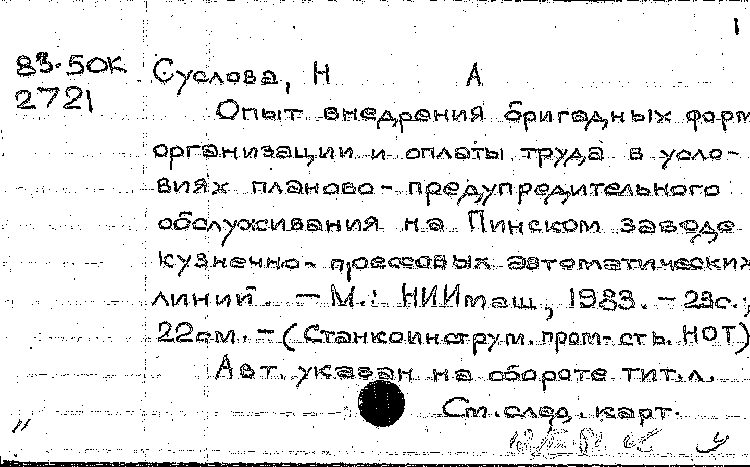 1
83-50К Суслова, Н А
2721
Опыт внедрения бригадных форм
организации и оплаты труда в усло-
виях планово-предупредительного
обслуживания на Пинском заводе
кузнечно-прессовых автоматических
линий. — М.: НИИмаш, 1983. — 23с.;
22см. — (Станкоинструм. пром-сть. НОТ)
Авт. указан на обороте тит. л.
См. след. карт.